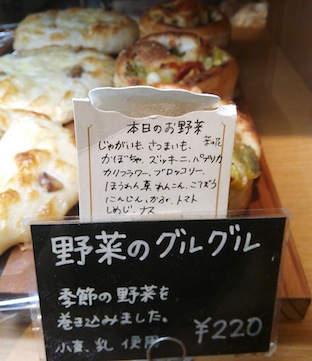 本日のお野菜
じゃがいも、さつまいも、菜の花
かぼちゃ、ズッキーニ、パプリカ
カリフラワー、ブロッコリー、
ほうれん草、れんこん、ごぼう
にんじん、かぶ、トマト
しめじ、ナス
野菜のグルグル
季節の野菜を
巻き込みました。
小麦、乳 使用
¥220